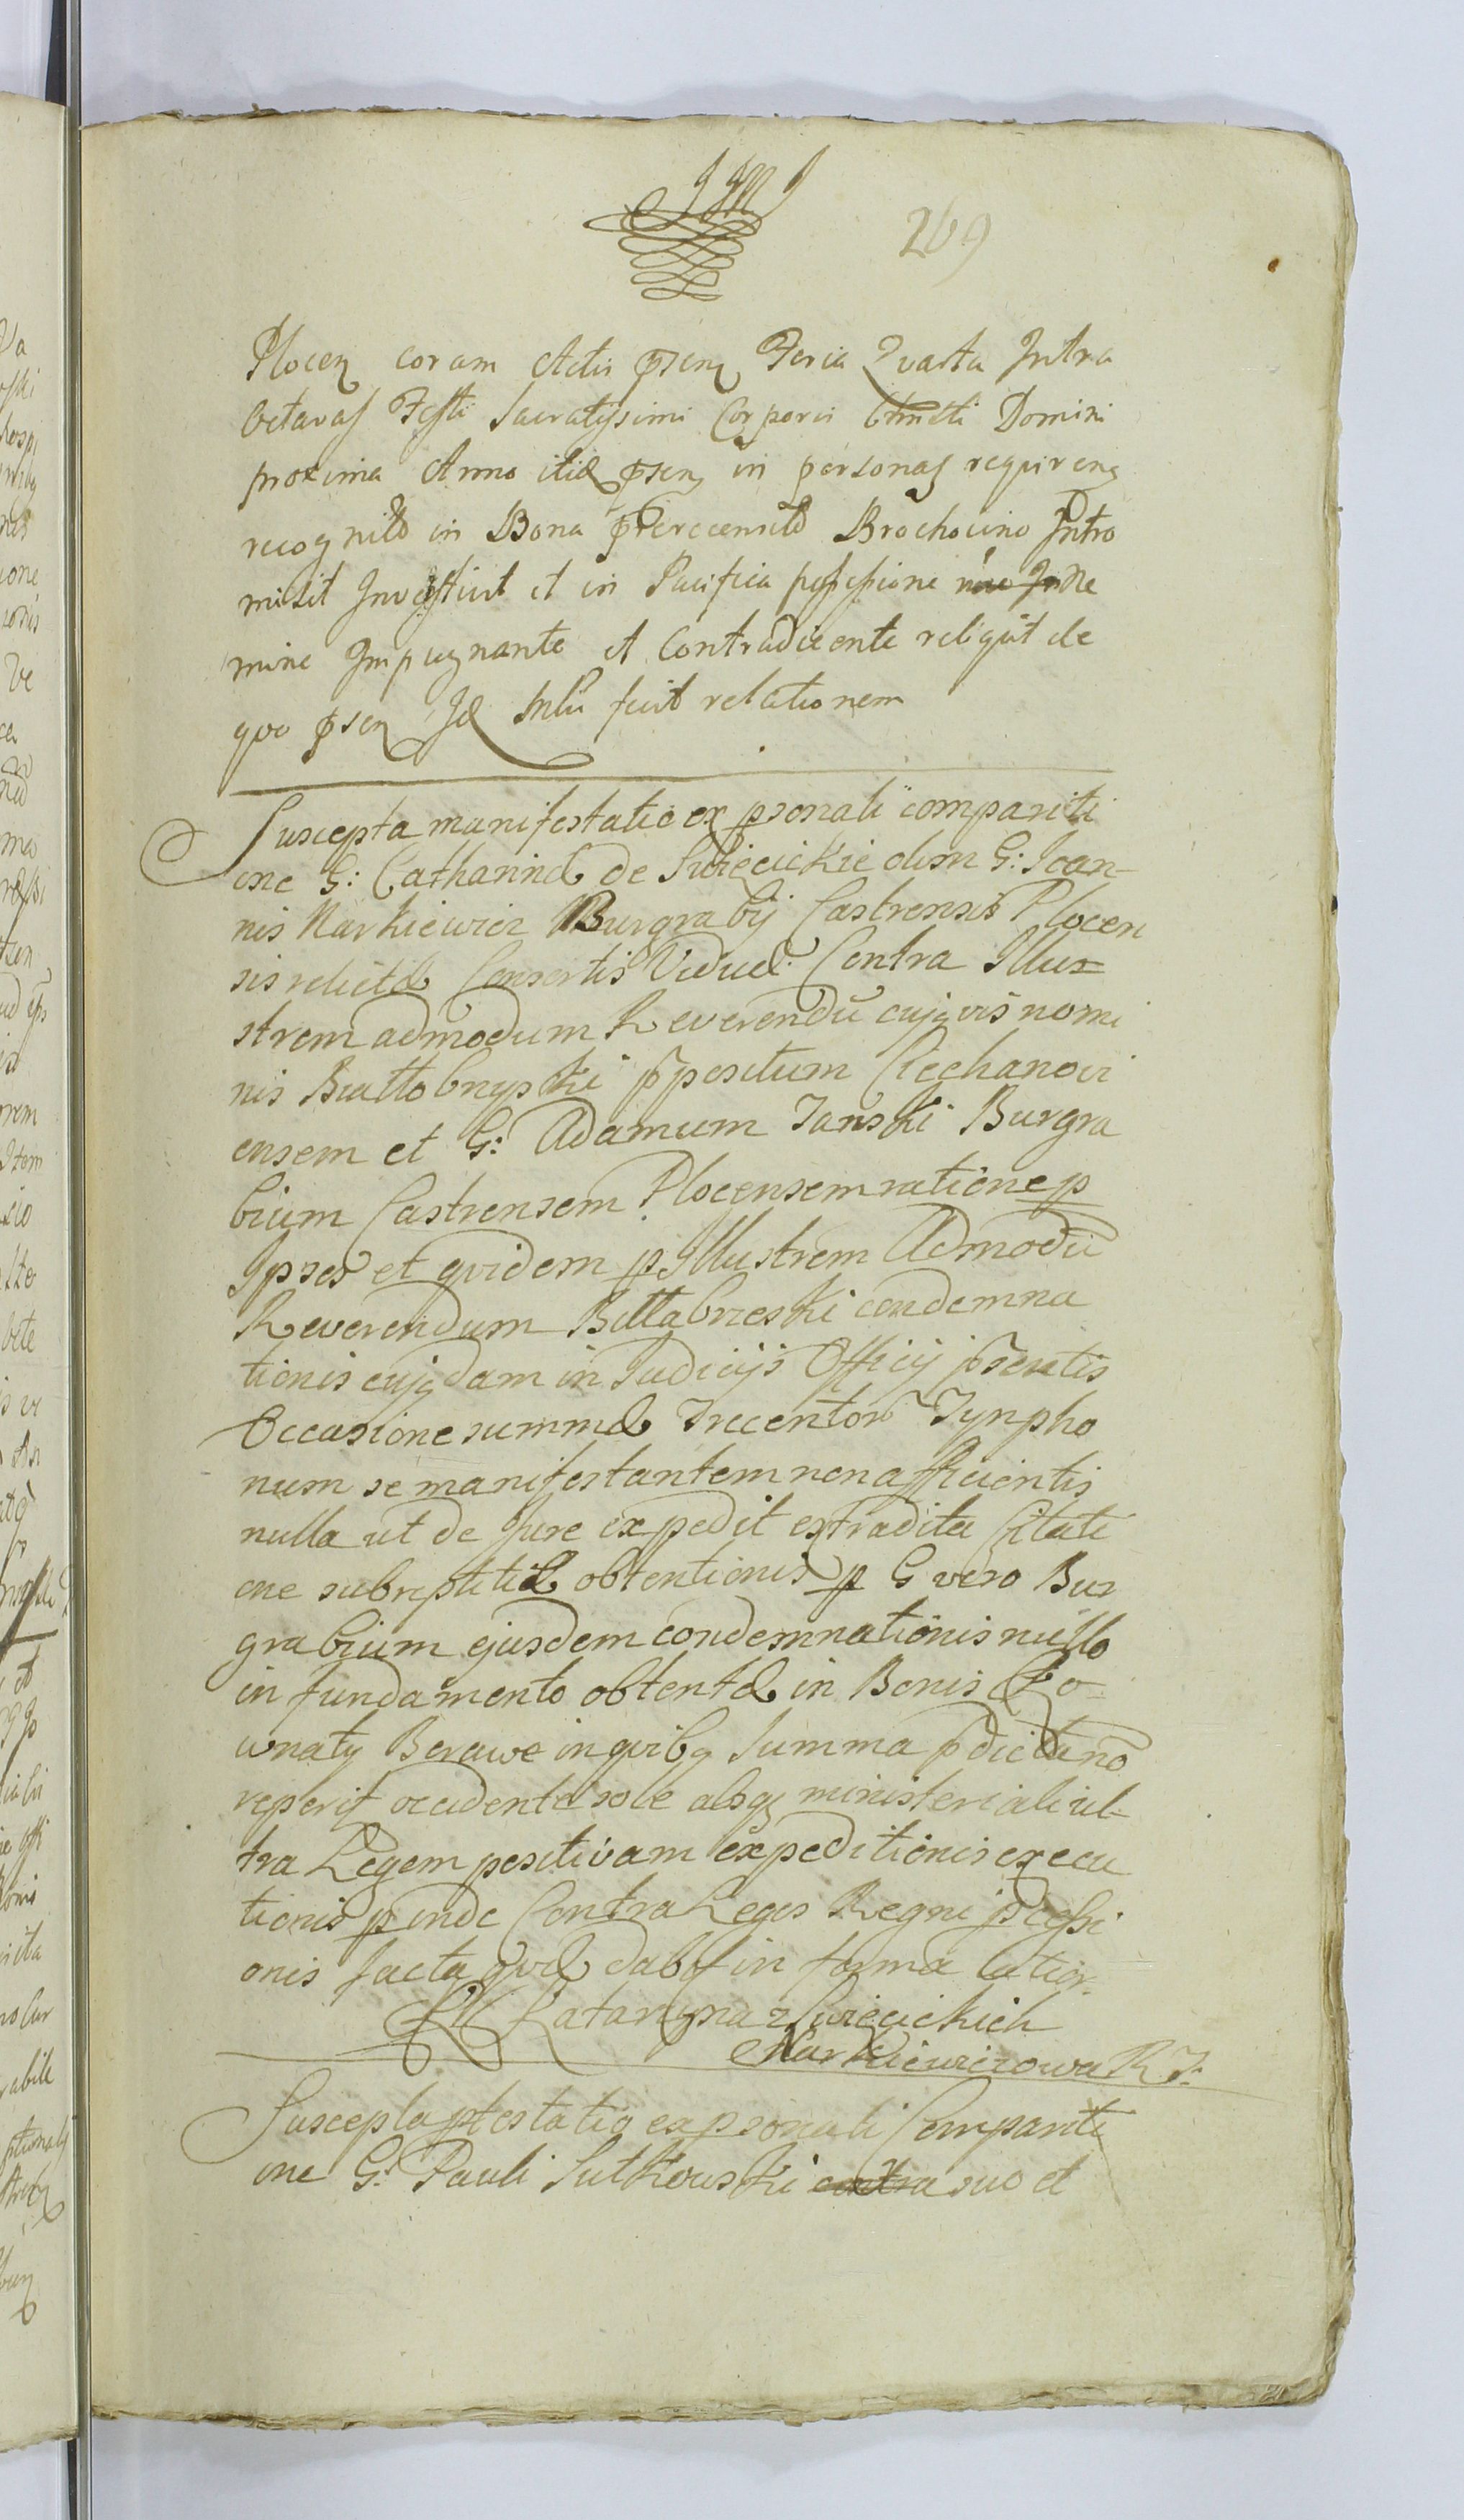 J M J
269
Plocen coram Actis pñsen Feria Qvarta Intra
Octavas Festi Sacratissimi Corporis Christi Domini
proxima Anno itid pñsen in personas requirens
recognito in Bona præcensito Brochocino Intro
misit Investivit et in Pacifica possessione Ne
mine Impugnante et Contradicente reliquit de
qvo pñsen Id fecit relationem
Suscepta manifestatio ex psonali compariti
one G: Catharinæ de Swięcickie olim G: Joan-
nis Narkiewicz Burgrabij Castrensis Plocen
sis relictæ Consortis Viduæ Contra Illus=
strem admodum Reverendũ cujqvis nomi
nis Białłobrzyski p̃positum Ciechanovi
ensem et G: Adamum Janski Burgra
bium Castrensem Plocensem ratione p
Ipsos et qvidem p Illustrem Admodũ
Reverendum Białłabrzeski condemna
tionis cujqdam in Judicijs Officij p̃sentis
Occasione summæ Trecentor Tynpho
num se manifestantem non afficientis
nulla ut de Jure expedit extradita Citati
one subreptitiæ obtentionis p G vero Bur
grabium ejusdem condemnationis nullo
in fundamento obtentæ in Bonis Ko
wnaty Borowe in qvibq Summa p̃dicta nõ
reperit occidente sole absq ministeriali ul-
tra Legem positivam expeditionis execu
tionis p inde Contra Leges Regni p̃cessi
onis facta qvæ dabit in forma latior.
Katarzyna z Swięcickich
Narkiewiczowa R J:
Suscepta ptestatio ex psonali Compariti
one G: Pauli Sutkowski contra suo et